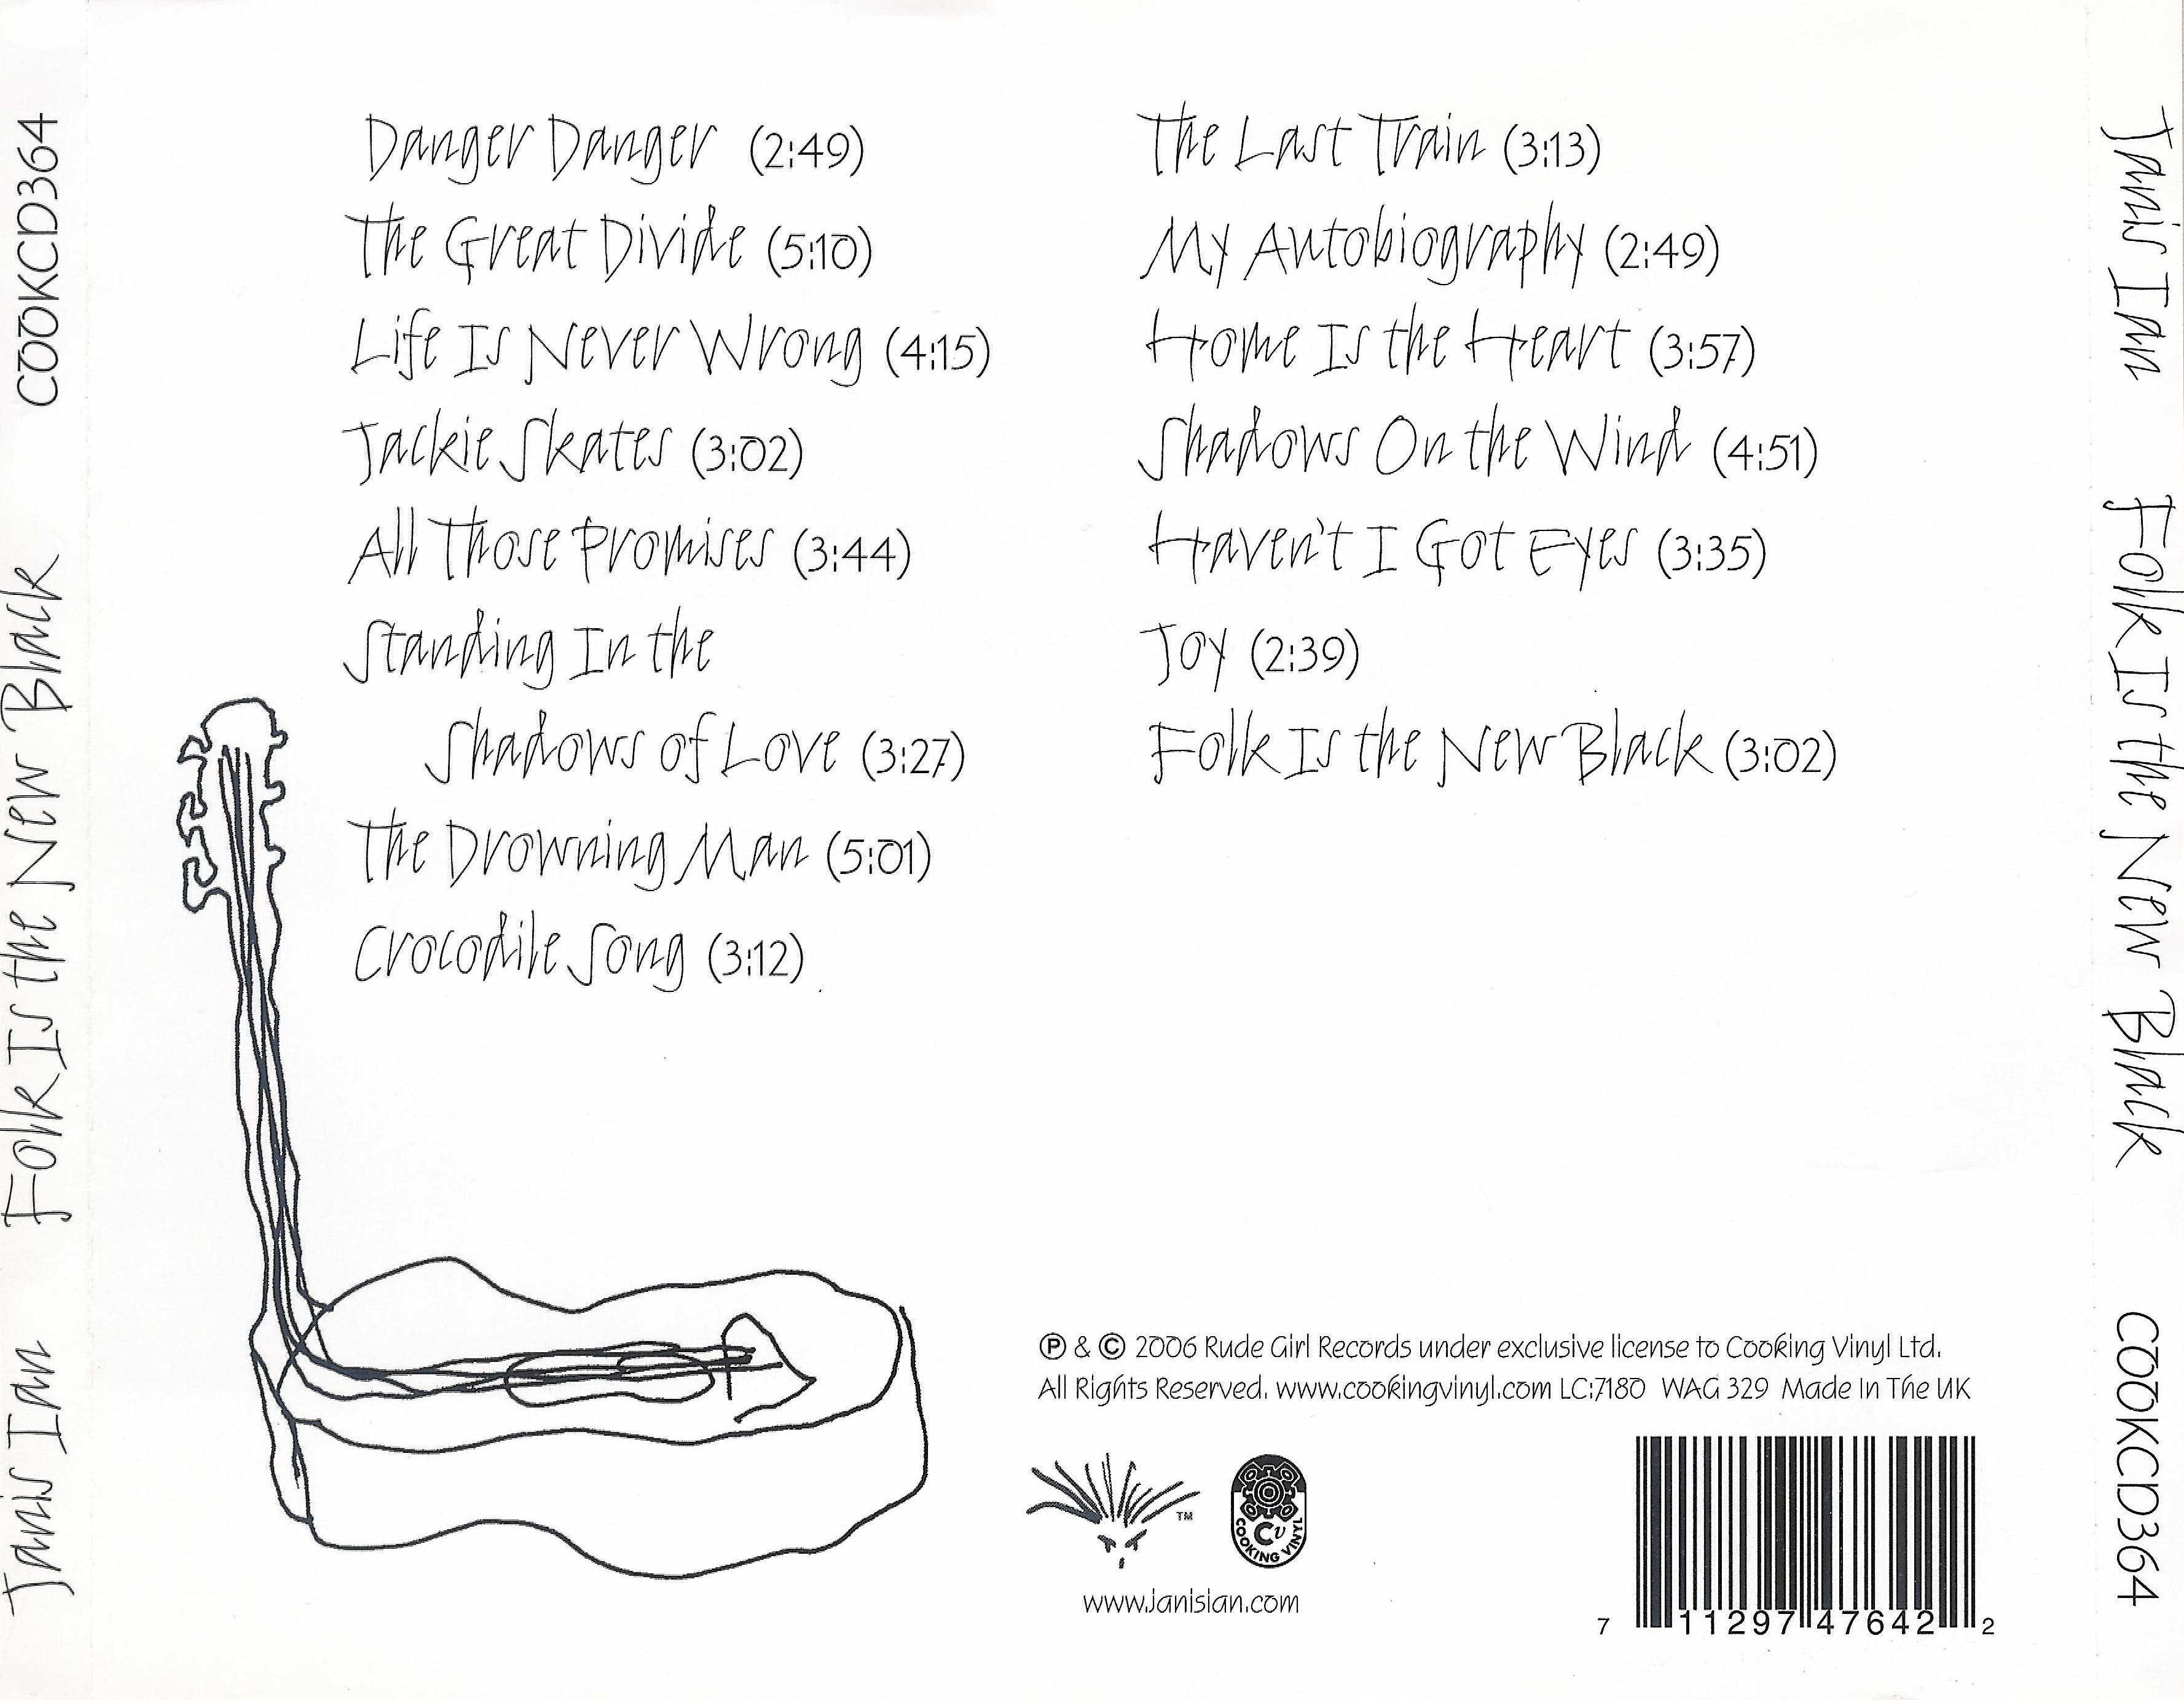 COOKCD364
Folk Is the New Black
Janis Ian
Danger Danger (2:49)
The Great Divide (5:10)
Life Is Never Wrong (4:15)
Jackie Skates (3:02)
All Those Promises (3:44)
Standing In the
Shadows of Love (3:27)
The Drowning Man (5:01)
Crocodile Song (3:12)
The Last Train (3:13)
My Autobiography (2:49)
Home Is the Heart (3:57)
Shadows On the Wind (4:51)
Haven't I Got Eyes (3:35)
Joy (2:39)
Folk Is the New Black (3:02)
℗ & © 2006 Rude Girl Records under exclusive license to Cooking Vinyl Ltd.
All Rights Reserved. www.cookingvinyl.com LC:7180 WAG 329 Made In The UK
TM
Cv
COOKING VINYL
www.janisian.com
7 11297 47642 2
Janis Ian
Folk Is the New Black
COOKCD364